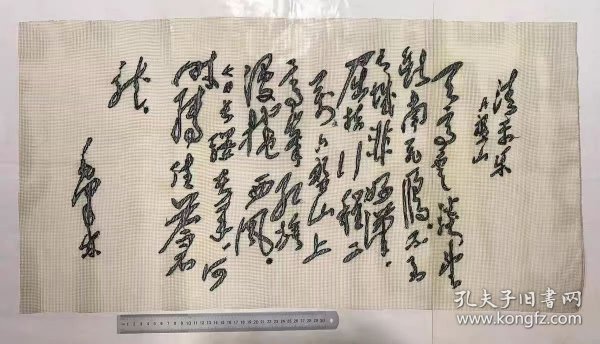 清平乐
六盘山
天高云淡望
断南飞雁。不到
长城非好汉。
屈指行程二
万。六盘山上
高峯红旗
漫捲西风。
今日长缨在手，何
时缚住苍
龙。
毛泽东
孔夫子旧书网
www.kongfz.com